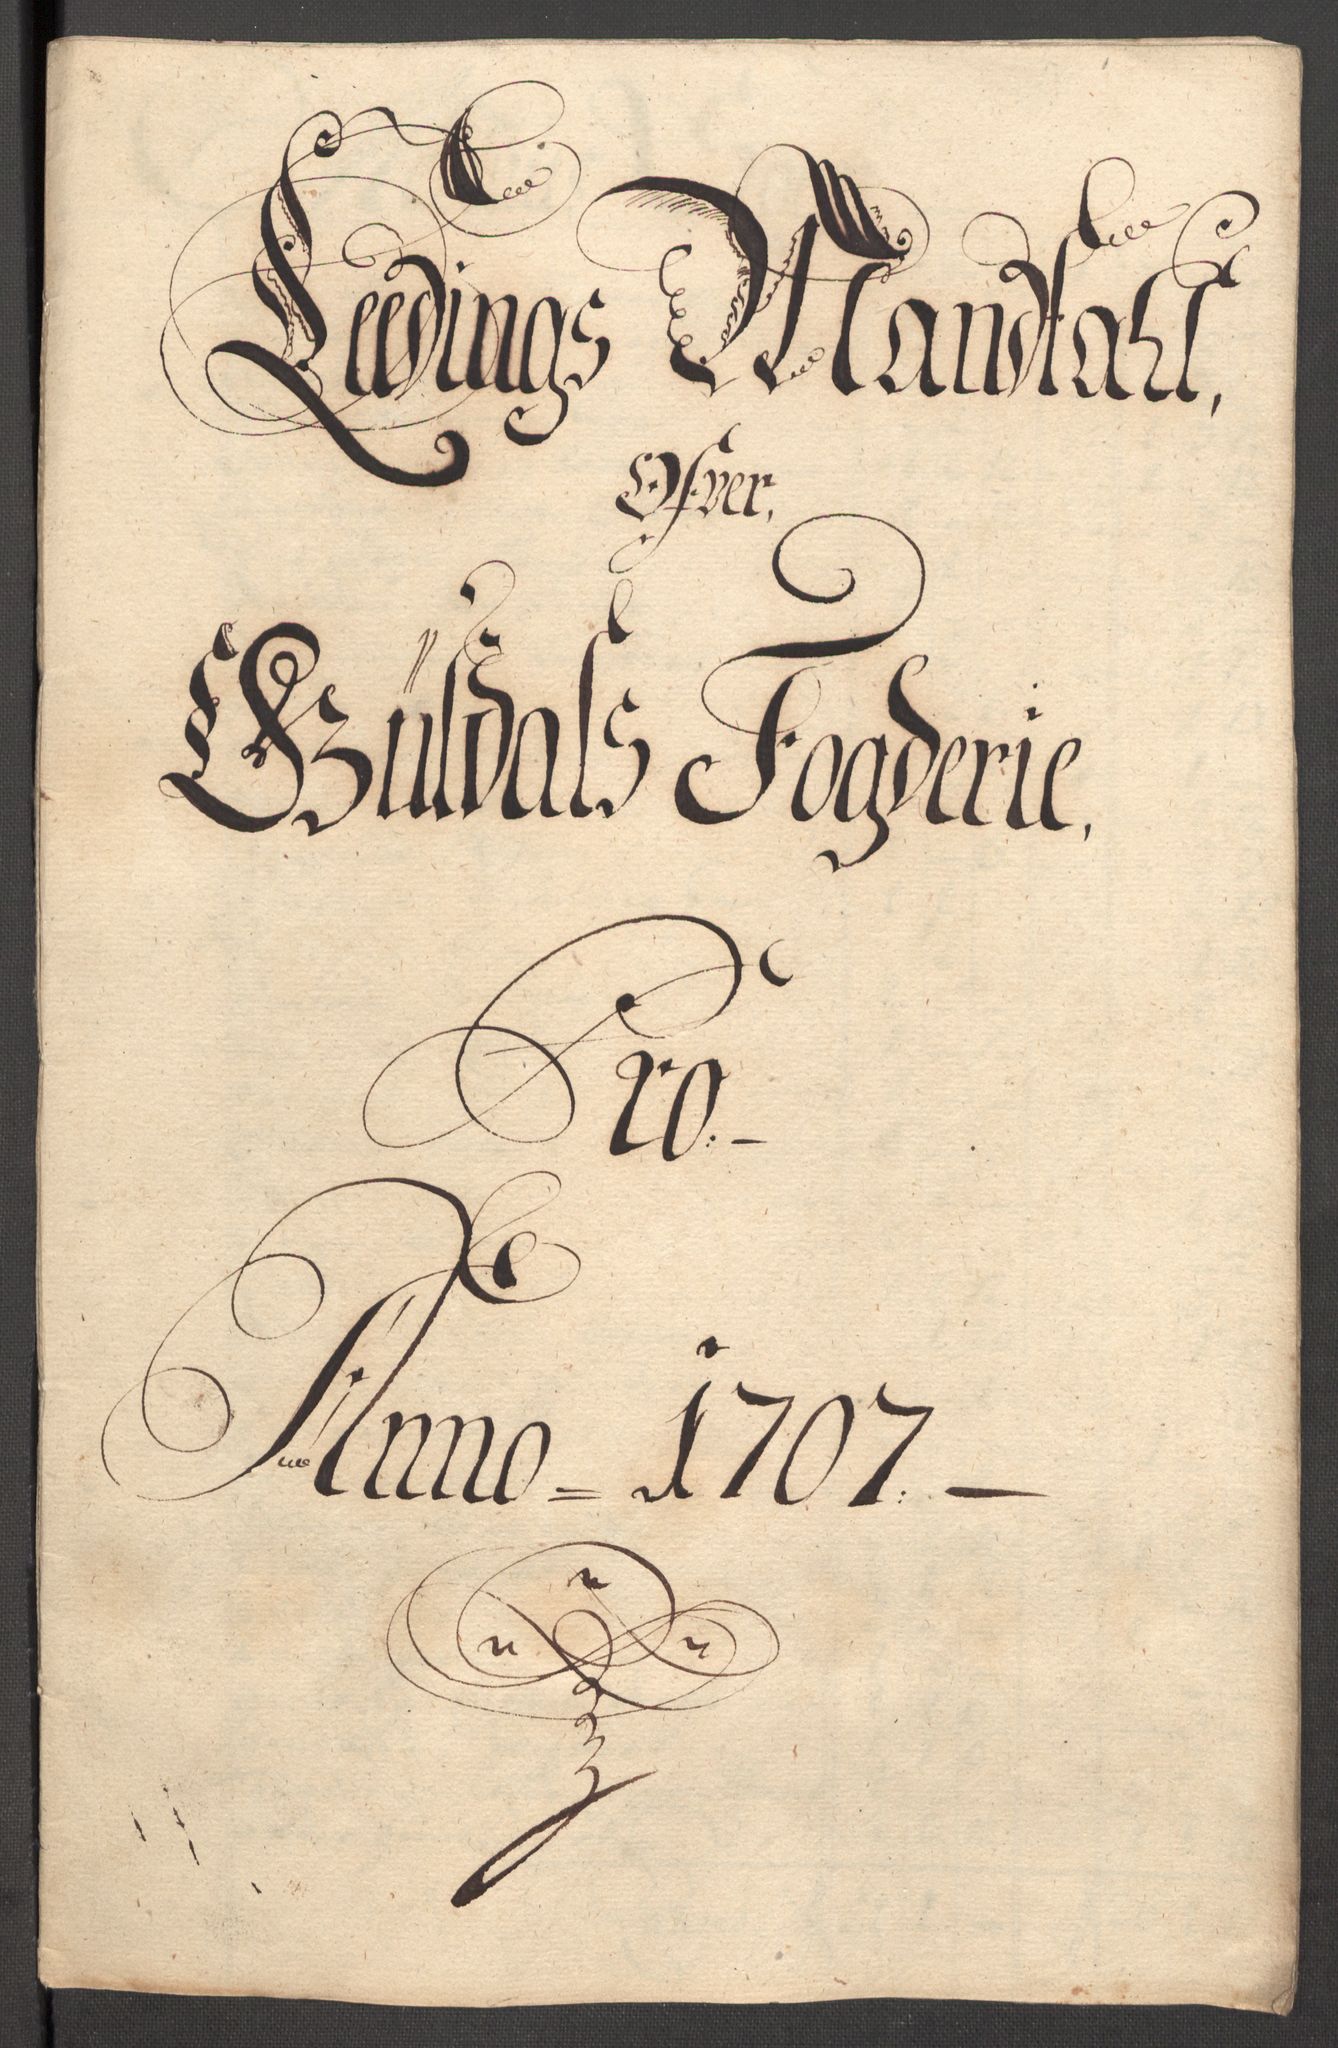 Leedings Mandtahl,
Ofver,
Guldals Fogderie,
Pro:-
Anno = 1707:-